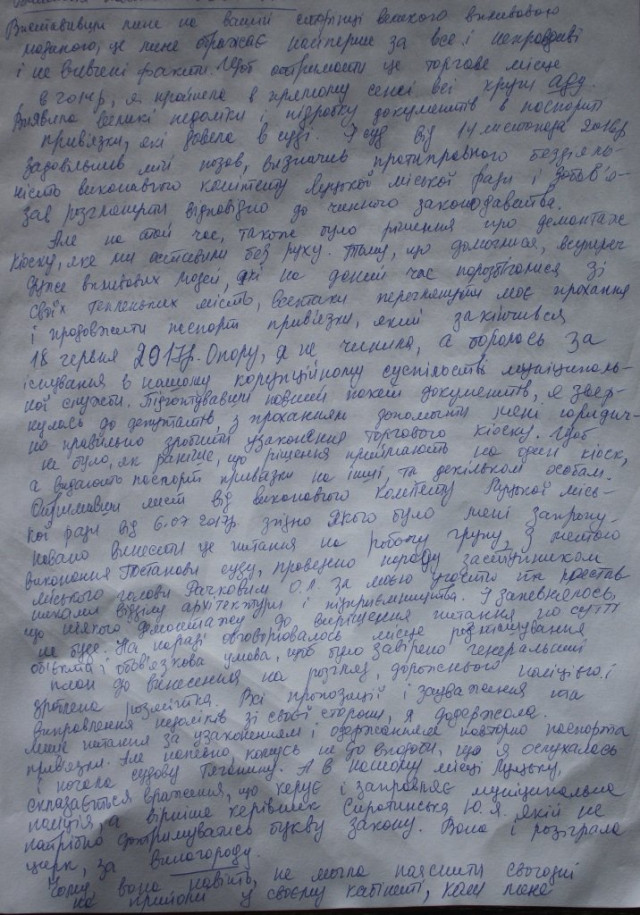 Виставивши мене на вашій сторінці великого впливовою
людиною, це мене ображає найперше за все і неправдиві
і не вивчені факти. Щоб отримати це торгове місце
в 2014р, я пройшла в прямому сенсі всі круги аду.
Виявила великі недоліки і підробку документів в паспорті
прив'язки, які довела в суді. І суд від 14 листопада 2016р
задовільнив мій позов, визначив протиправного бездіяль-
ність виконавчого комітету Луцької міської ради і зобов'я-
зав розглянути відповідно до чинного законодавства.
Але на той час, також було рішення про демонтаж
кіоску, яке ми оставили без руху. Тому, що домоглися, всупереч
дуже впливових людей, які на даний час порозбігалися зі
своїх тепленьких місць, всетаки переглянути моє прохання
і продовжити паспорт прив'язки, який закінчився
18 червня 2017р. Опору, я не чинила, а боролась за
існування в нашому корупційному суспільстві муніципаль-
ної служби. Підготувавши повний пакет документів, я звер-
нулась до депутатів, з проханням допомогти мені юридич-
но правильно зробити узаконення торгового кіоску. Щоб
не було, як раніше, що рішення приймають на один кіоск,
а видають паспорт привязки на інші, та декільком особам.
Отримавши лист від виконавчого комітету Луцької місь-
кої ради від 6.07 2017р згідно якого було мені запропо-
новано винести це питання на робочу групу, з метою
виконання Постанови суду, проведено нараду заступником
міського голови Рачковим О. за моєю участю та представ
никами відділу архітектури і підприємництва. І запевнялось,
що ніякого демонтажу до вирішення питання по суті
не буде. На нараді обговорювалось місце розміщування
об'єкта і обов'язкова умова, щоб було завірено генеральний
план до винесення на розгляд, дорожнього поліцією і
зроблена розмітка. Всі пропозиції і зауваження та
виправлення недоліків зі своєї сторони, я додержала.
Лише питання за узаконенням і одержанням повторно паспорта
прив'язки. Але напевно комусь не до вподоби, що я ослухалась
і почала судову тяганину. А в нашому місці Луцьку,
складається враження, що керує і заправляє муніципальна
поліція, а вірніше керівник Сиротинська Ю.Я. якій не
потрібно дотримуватися букву закону. Вона і розіграла
цирк, за винагороду.
Чому, вона навіть, не могла пояснити сьогодні
на прийомі у своєму кабінеті, коли мене